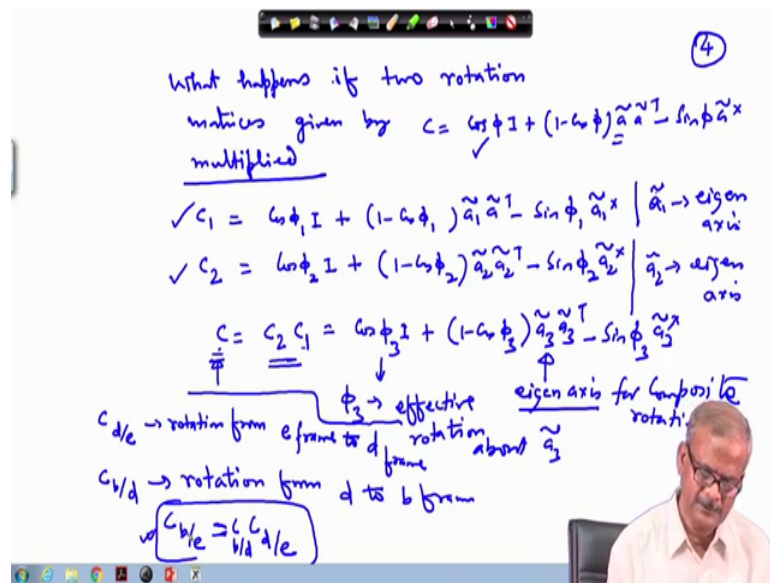 4
What happens if two rotation
matrices given by C = cosφ I + (1-cosφ) ã ãᵀ - sinφ ãˣ
multiplied
✓ C₁ = cosφ₁ I + (1-cosφ₁) ã₁ ãᵀ - sinφ₁ ã₁ˣ | ã₁ → eigen axis
✓ C₂ = cosφ₂ I + (1-cosφ₂) ã₂ ã₂ᵀ - sinφ₂ ã₂ˣ | ã₂ → eigen axis
C = C₂ C₁ = cosφ₃ I + (1-cosφ₃) ã₃ ã₃ᵀ - sinφ₃ ã₃ˣ
φ₃ → effective rotation about ã₃
eigen axis for Composite
C d/e → rotation from e frame to d frame
C b/d → rotation from d to b frame
C b/e = C b/d C d/e